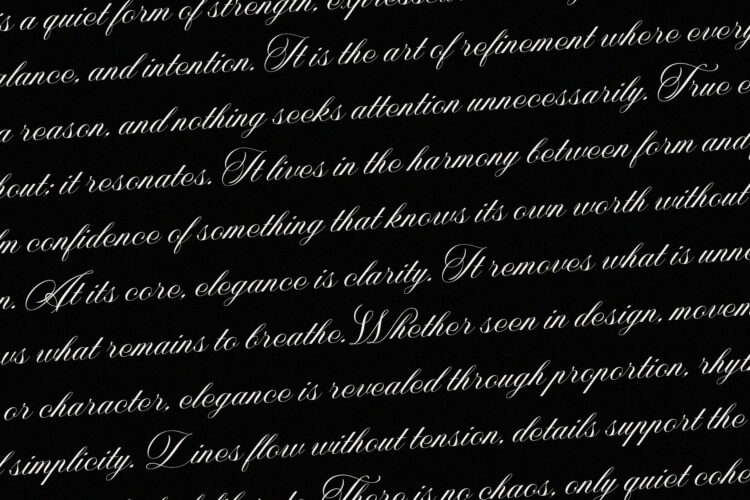 is a quiet form of strength, expressed
alance, and intention. It is the art of refinement where every
a reason, and nothing seeks attention unnecessarily. True e
hout; it resonates. It lives in the harmony between form and
lm confidence of something that knows its own worth without
n. At its core, elegance is clarity. It removes what is unne
ws what remains to breathe. Whether seen in design, movem
or character, elegance is revealed through proportion, rhyt
l simplicity. Lines flow without tension, details support the
There is no chaos, only quiet cohe